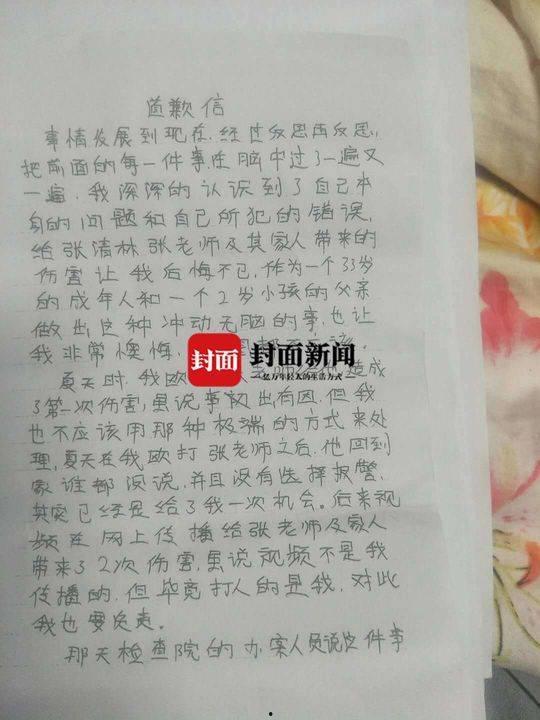 道歉信
事情发展到现在,经过反思再反思,
把前面的每一件事在脑中过了一遍又
一遍,我深深的认识到了自己本
身的问题和自己所犯的错误,
给张清林张老师及其家人带来的
伤害让我后悔不已,作为一个33岁
的成年人和一个2岁小孩的父亲
做出这种冲动无脑的事,也让
我非常懊悔,
封面 封面新闻
亿万年轻人的生活方式
夏天时,我欧 造成
了第一次伤害,虽说事初出有因,但我
也不应该用那种极端的方式来处
理,夏天在我欧打张老师之后,他回到
家谁都没说,并且没有选择报警,
其实已经是给了我一次机会。后来视
频在网上传播给张老师及家人
带来了2次伤害,虽说视频不是我
传播的,但毕竟打人的是我,对此
我也要负责。
那天检查院的办案人员说这件事